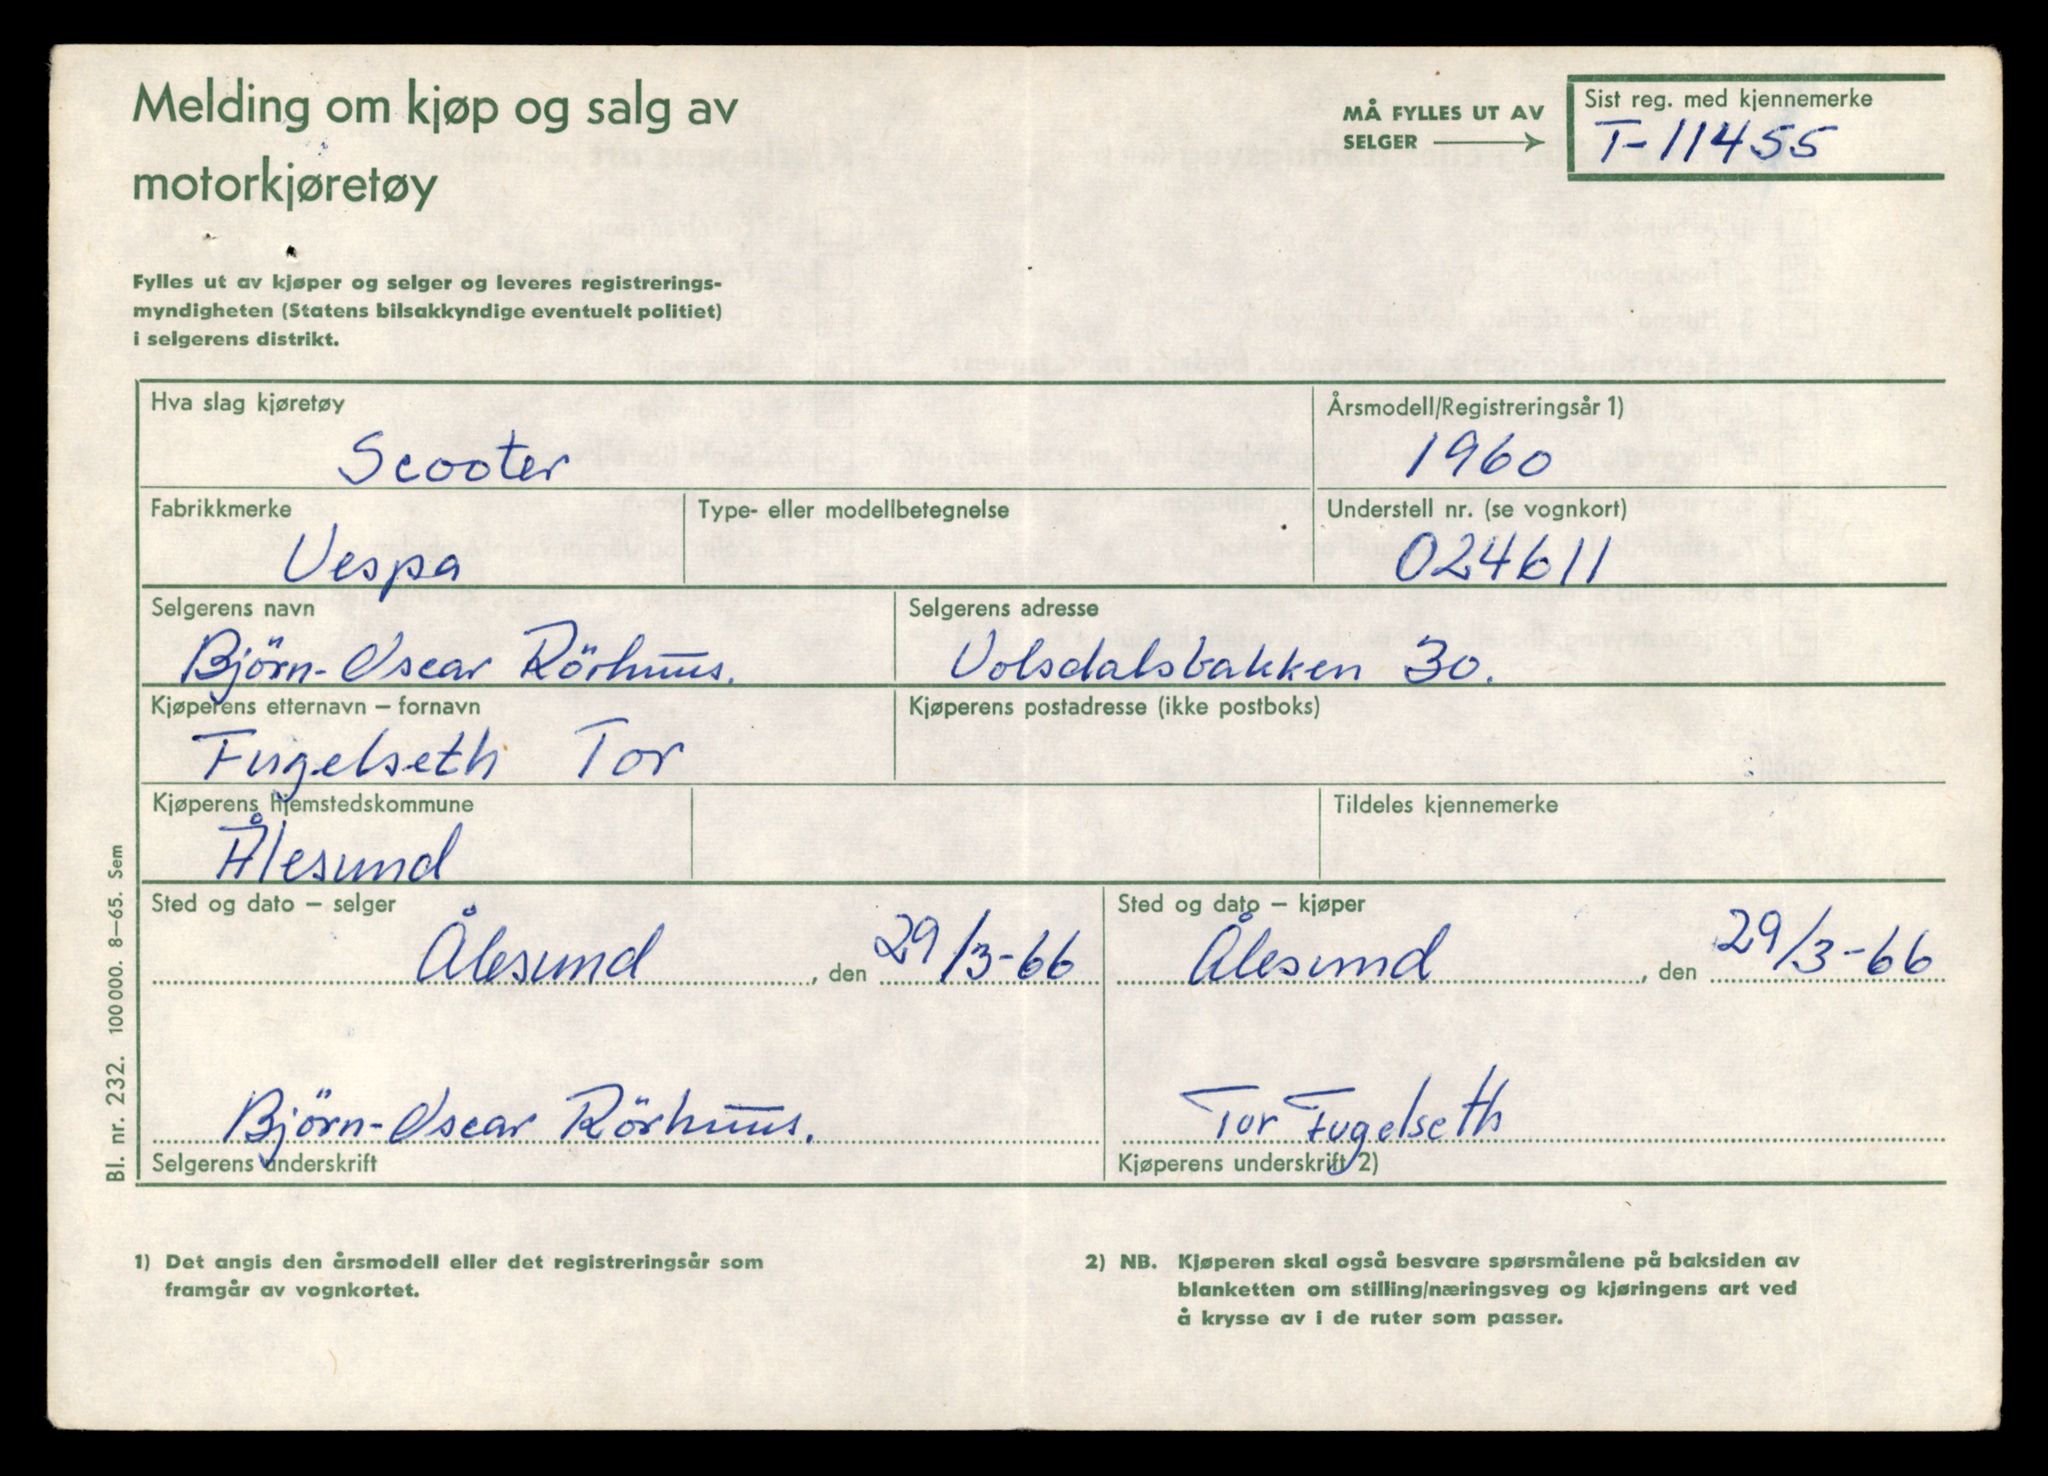 Melding om kjøp og salg av
motorkjøretøy
MÅ FYLLES UT AV
SELGER
Sist reg. med kjennemerke
T-11455
Fylles ut av kjøper og selger og leveres registrerings-
myndigheten (Statens bilsakkyndige eventuelt politiet)
i selgerens distrikt.
Hva slag kjøretøy
Scooter
Årsmodell/Registreringsår 1)
1960
Fabrikkmerke
Vespa
Type- eller modellbetegnelse
Understell nr. (se vognkort)
024611
Selgerens navn
Björn-Oscar Rörhuus.
Selgerens adresse
Volsdalsbakken 30.
Kjøperens etternavn – fornavn
Fugelseth Tor
Kjøperens postadresse (ikke postboks)
Kjøperens hjemstedskommune
Ålesund
Tildeles kjennemerke
Sted og dato – selger
Ålesund, den 29/3-66
Sted og dato – kjøper
Ålesund, den 29/3-66
Björn-Oscar Rörhuus.
Selgerens underskrift
Tor Fugelseth
Kjøperens underskrift 2)
Bl. nr. 232. 100 000. 8–65. Sem
1) Det angis den årsmodell eller det registreringsår som
framgår av vognkortet.
2) NB. Kjøperen skal også besvare spørsmålene på baksiden av
blanketten om stilling/næringsveg og kjøringens art ved
å krysse av i de ruter som passer.